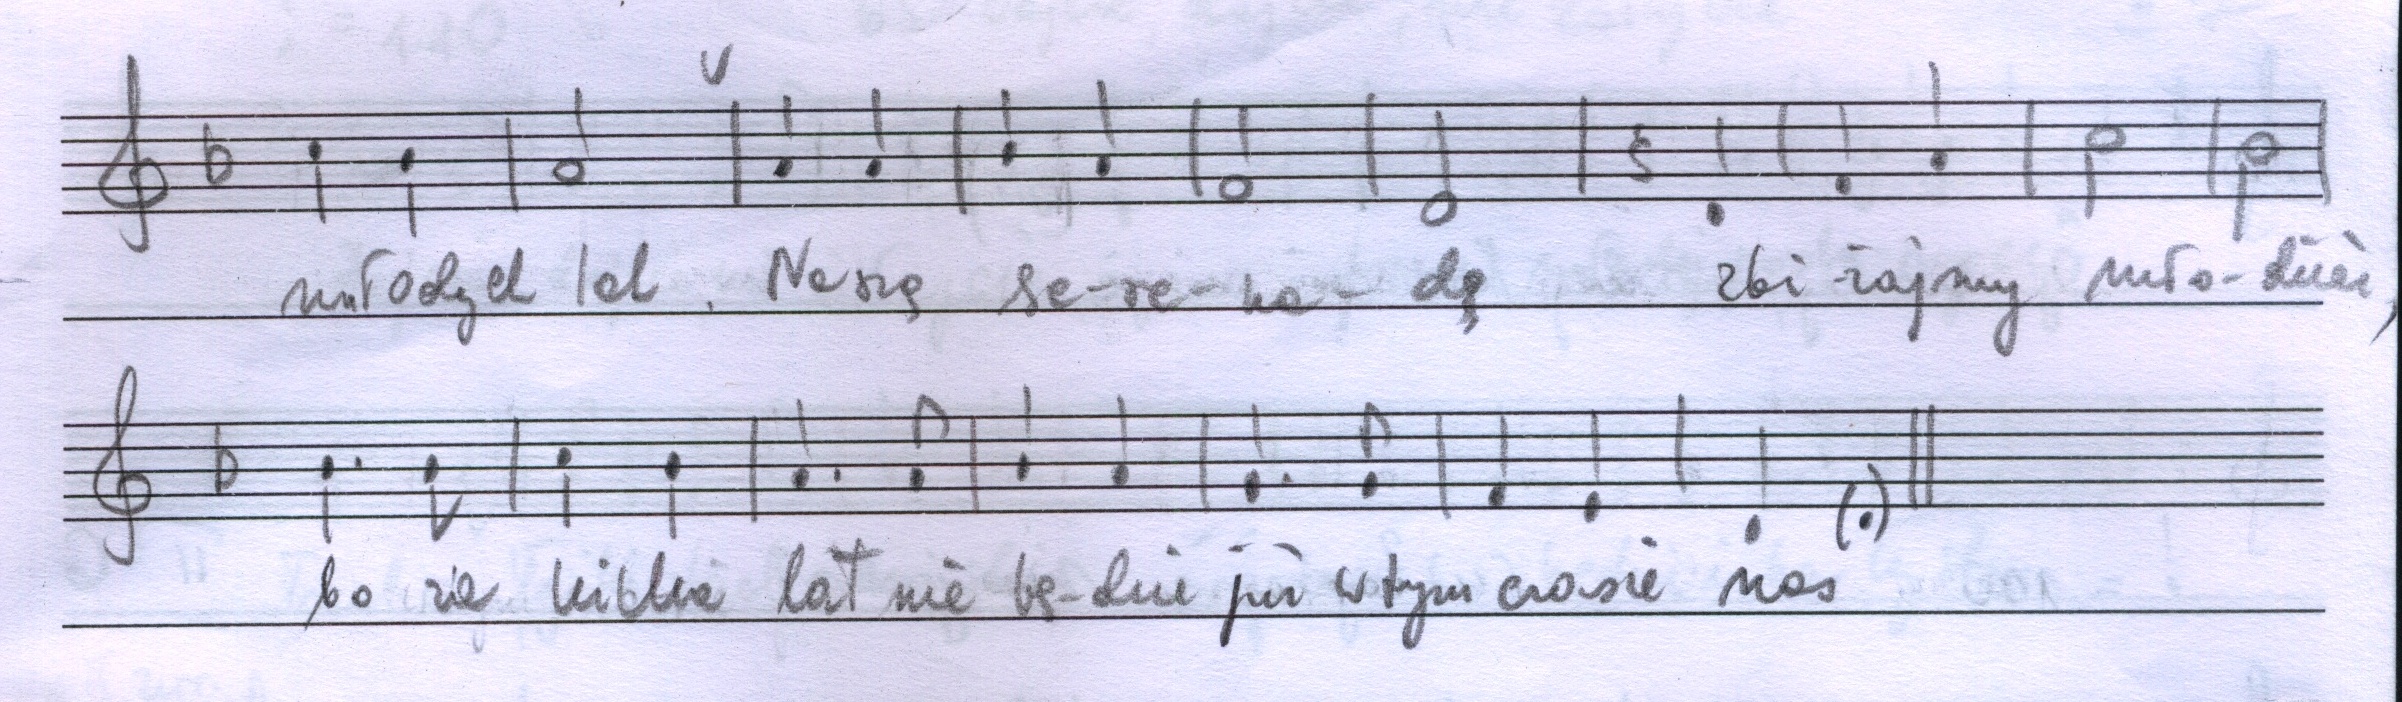 młodych lat. Naszą se-re-na-dę zbi-żajmy mło-dzież,
bo za kilka lat nie bę-dzie już w tym czasie nas